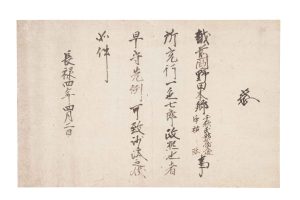 越前國野田本郷事
所充行一色七郎政熈也者
早守先例可致沙汰之状
如件
長禄四年四月二日